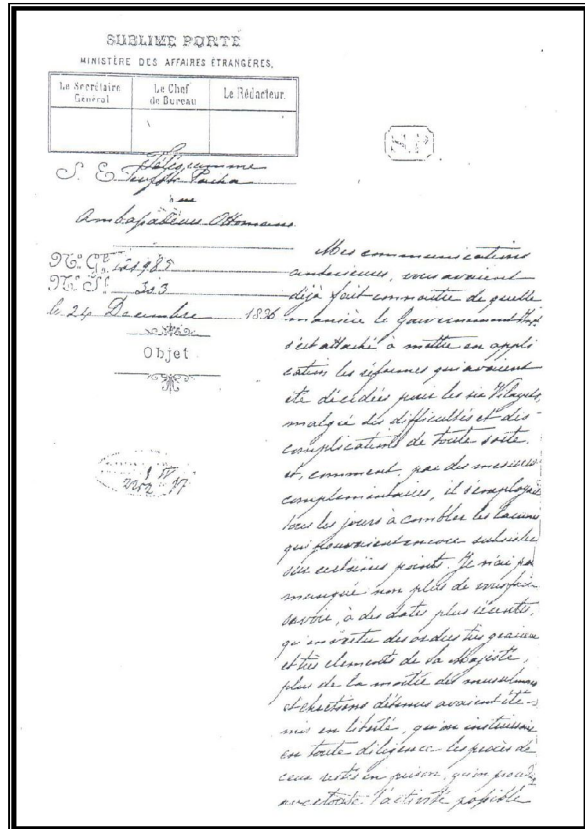 SUBLIME PORTE
MINISTÈRE DES AFFAIRES ÉTRANGÈRES.
Le Secrétaire Général
Le Chef de Bureau
Le Rédacteur.
Télégramme
S. E. Tevfik Pacha
aux
Ambassadeurs Ottomans
No Gl 121985
No Sl 303
le 24 Decembre 1896
Objet
Mes communications
anterieures, vous avaient
déjà fait connaître de quelle
manière le Gouvernement Impl
s'est attaché à mettre en appli
cation les réformes qui avaient
été décidées pour les six Vilayets,
malgré des difficultés et des
complications de toute sorte
et, comment, par des mesures
complementaires, il s'employait
tous les jours à combler les lacunes
qui pouvaient encore subsister
sur certains points. Je n'ai pas
manqué non plus de vous faire
savoir, à des dates plus récentes,
qu'en vertu des ordres très gracieux
et très clements de Sa Majesté,
plus de la moitié des musulmans
et chretiens détenus avaient été
mis en liberté, qu'on instruisait
en toute diligence les procès de
ceux restés en prison, qu'on
avec toute l'activité possible